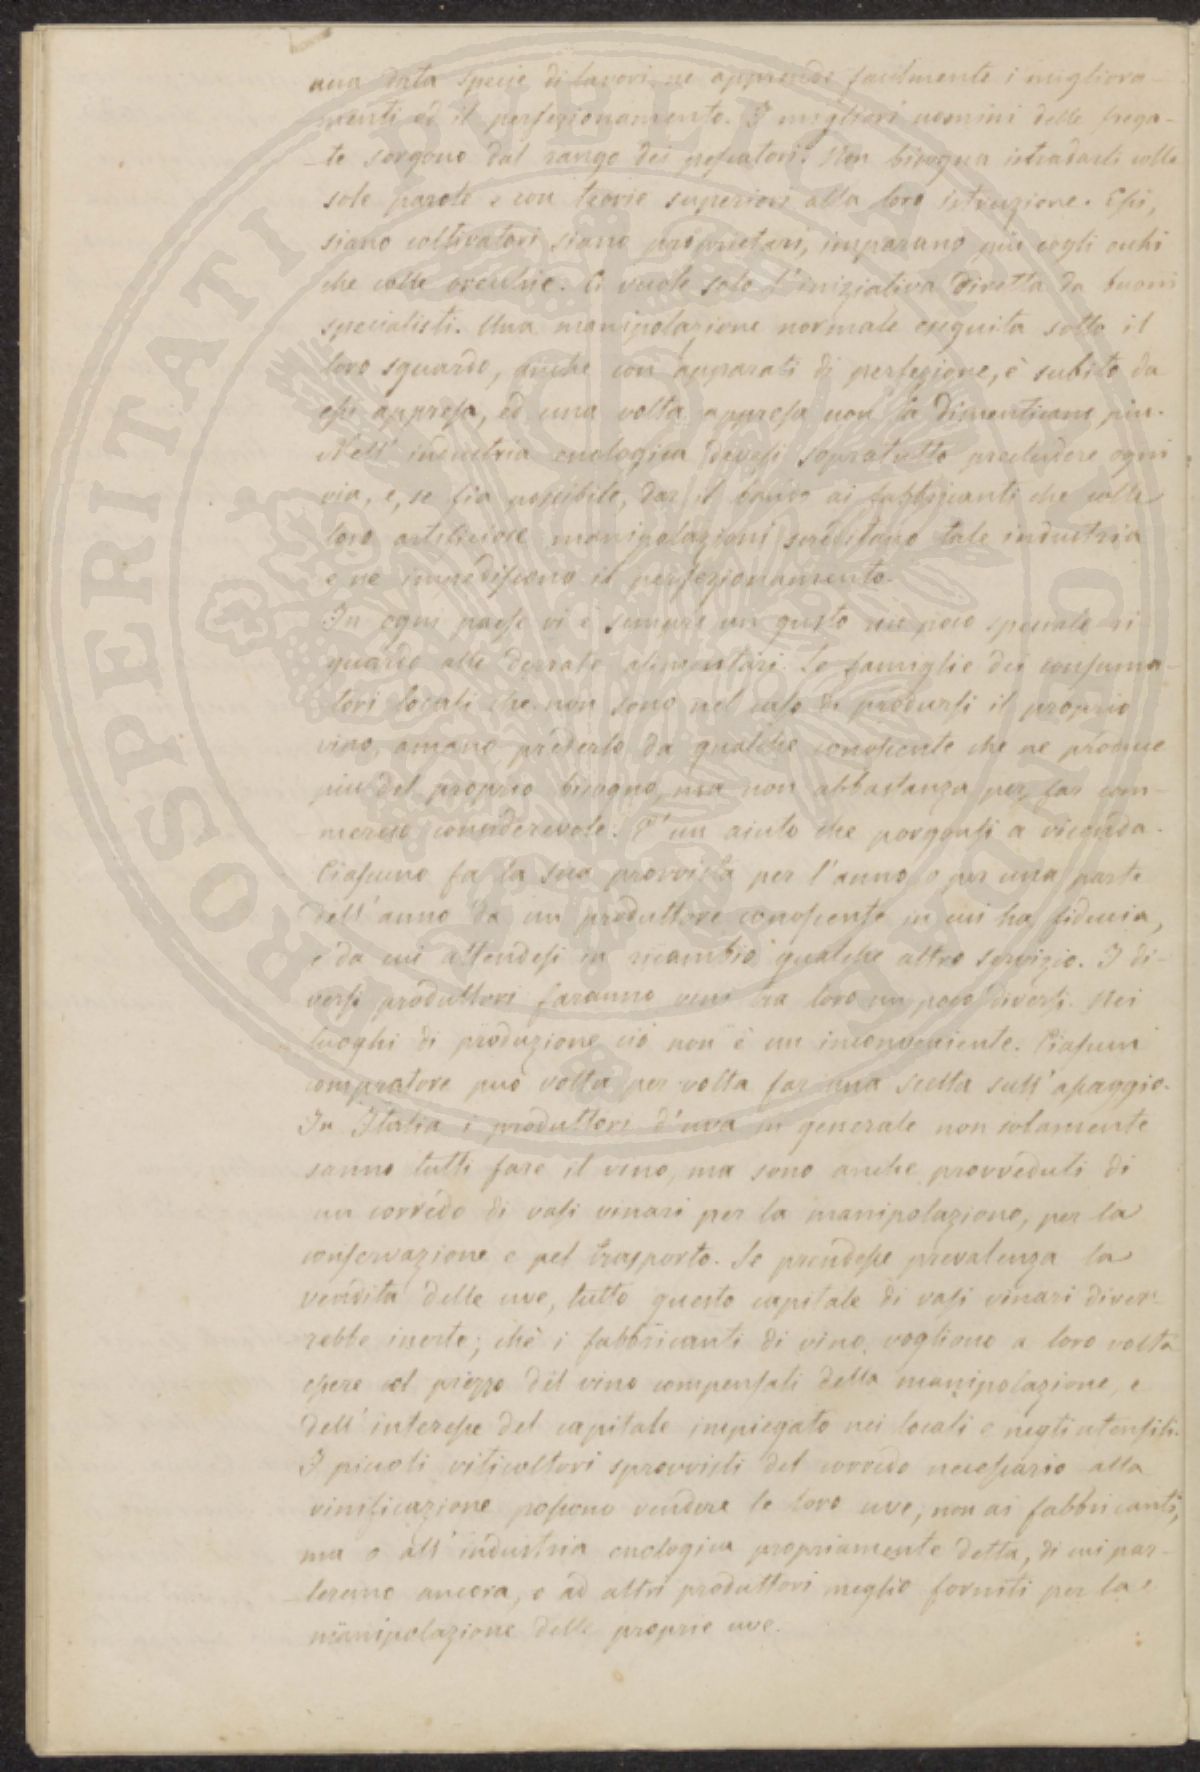 una data specie di lavori ne apprende facilmente i migliora-
menti ed il perfezionamento. I migliori uomini delle frega-
te sorgono dal rango dei pescatori. Non bisogna istradarli colle
sole parole e con teorie superiori alla loro istruzione. Essi,
siano coltivatori siano proprietari, imparano più cogli occhi
che colle orecchie. Ci vuole solo l'iniziativa diretta da buoni
specialisti. Una manipolazione normale eseguita sotto il
loro sguardo, anche con apparati di perfezione, è subito da
essi appresa, ed una volta appresa non la dimenticano piu.
Nell' industria enologica devesi sopratutto precludere ogni
via, e, se sia possibile, dar il bando ai fabbricanti che colle
loro artificiose manipolazioni screditano tale industria
e ne impediscono il perfezionamento.
In ogni paese vi è sempre un gusto un poco speciale ri-
guardo alle derrate alimentari. Le famiglie dei consuma-
tori locali che non sono nel caso di prodursi il proprio
vino, amano prenderlo da qualche conoscente che ne produce
piu del proprio bisogno, ma non abbastanza per far com-
mercio considerevole. E' un aiuto che porgonsi a vicenda.
Ciascuno fa la sua provvista per l'anno o per una parte
dell'anno da un produttore conoscente in cui ha fiducia,
e da cui attendesi in ricambio qualche altro servizio. I di-
versi produttori faranno vini tra loro un poco diversi. Nei
luoghi di produzione ciò non è un inconveniente. Ciascun
compratore può volta per volta far una scelta sull'assaggio.
In Italia i produttori d'uva in generale non solamente
sanno tutti fare il vino, ma sono anche provveduti di
un corredo di vasi vinari per la manipolazione, per la
conservazione e pel trasporto. Se prendesse prevalenza la
vendita delle uve, tutto questo capitale di vasi vinari diver-
rebbe inerte; chè i fabbricanti di vino vogliono a loro volta
essere col prezzo del vino compensati della manipolazione, e
dell'interesse del capitale impiegato nei locali e negli utensili.
I piccoli viticoltori sprovvisti del corredo necessario alla
vinificazione possono vendere le loro uve, non ai fabbricanti,
ma o all' industria enologica propriamente detta, di cui par-
leremo ancora, o ad altri produttori meglio forniti per la
manipolazione delle proprie uve.
PROSPERITATI PUBLICAE AUGENDAE